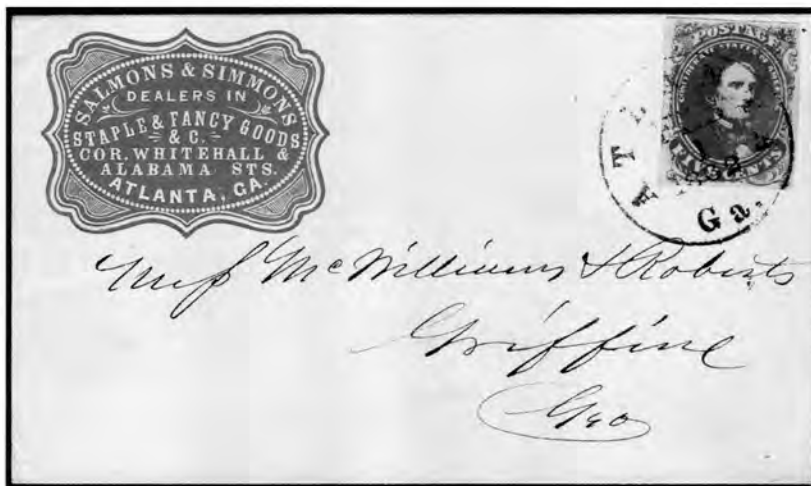 SALMONS & SIMMONS
DEALERS IN
STAPLE & FANCY GOODS
& C.
COR. WHITEHALL &
ALABAMA STS.
ATLANTA, GA.
POSTAGE
CONFEDERATE STATES OF AMERICA
FIVE CENTS
Ga.
Mess McWilliams & Roberts
Griffine
Geo